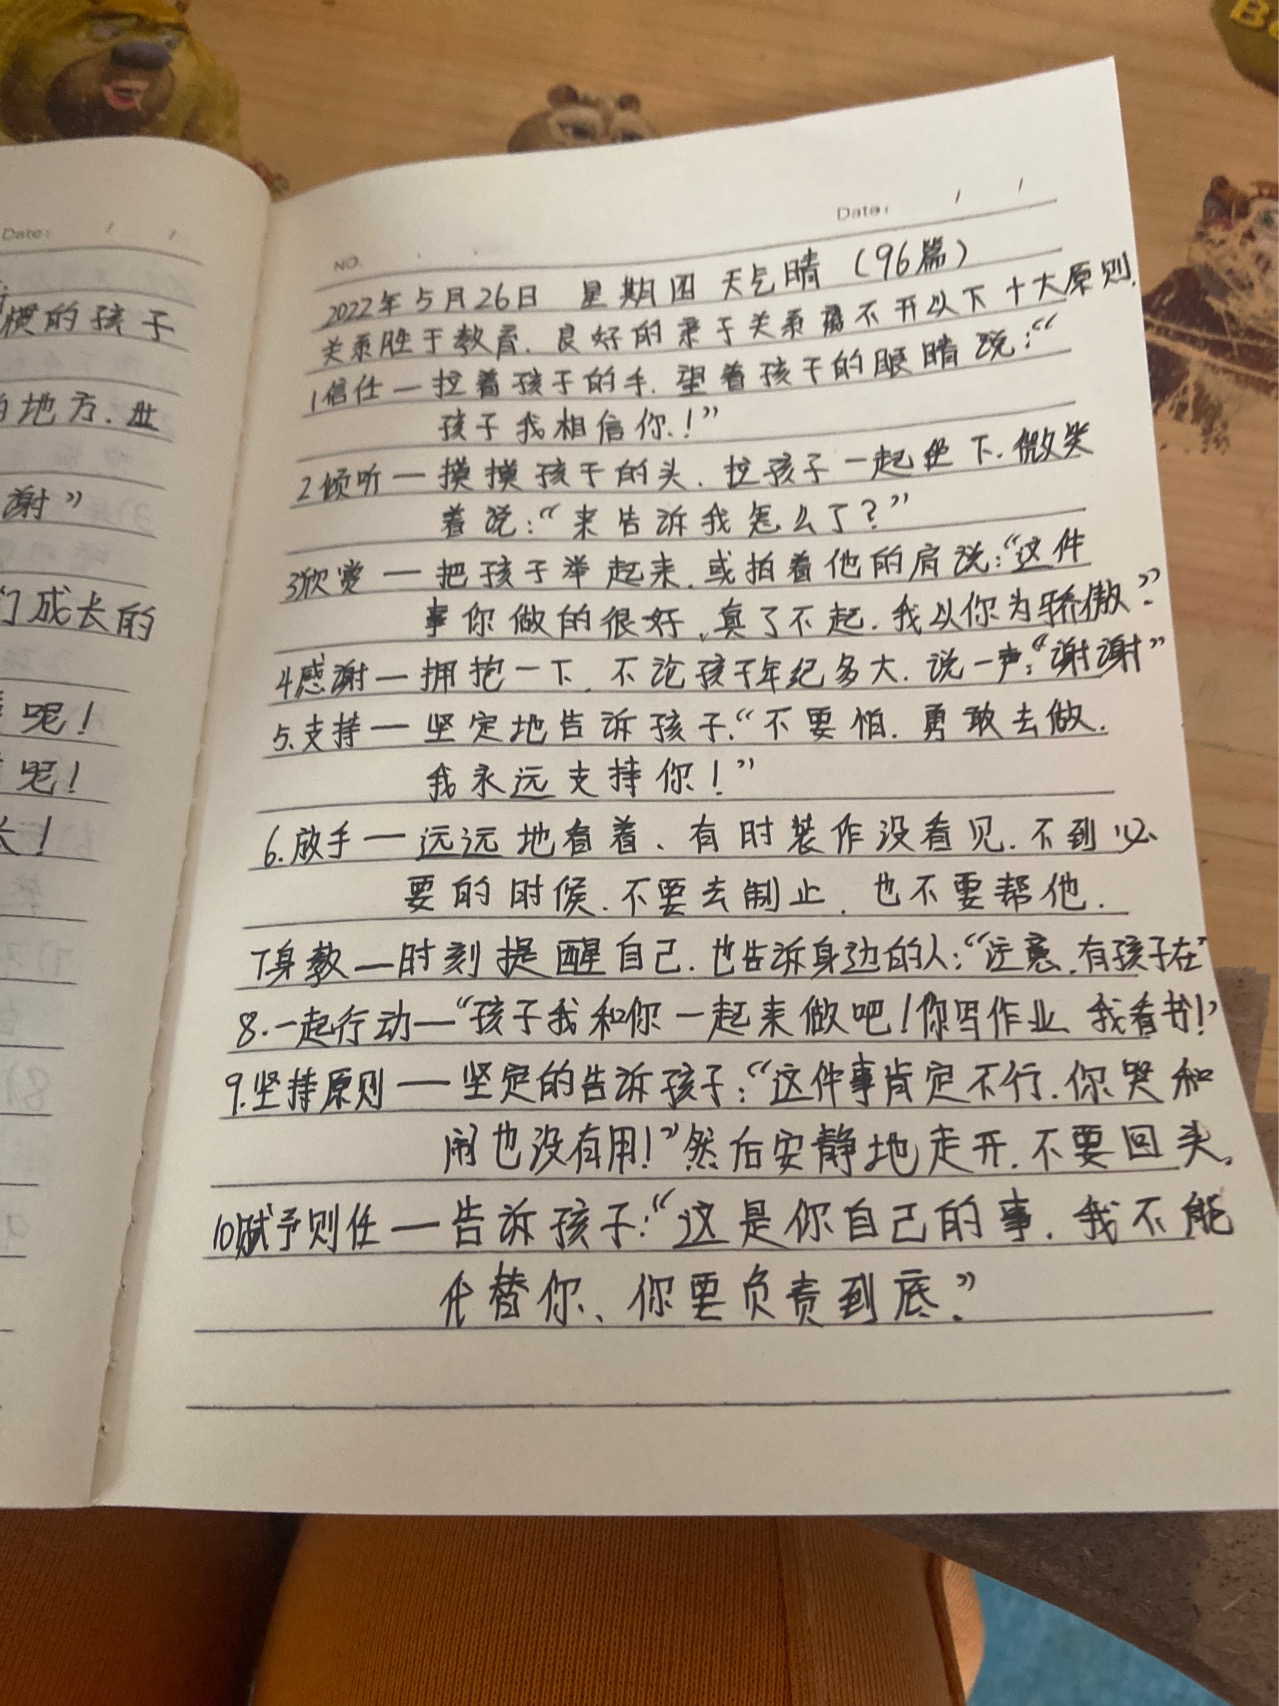 Date: / /
惯的孩子
的地方.业
谢”
们成长的
呢！
呢！
长！
NO.
Date: / /
2022年5月26日 星期四 天气晴（96篇）
关系胜于教育.良好的亲子关系离不开以下十大原则.
1信任—拉着孩子的手.望着孩子的眼睛说：“
孩子我相信你.！”
2倾听—摸摸孩子的头.拉孩子一起坐下.微笑
着说：“来告诉我怎么了？”
3欣赏—把孩子举起来.或拍着他的肩说：“这件
事你做的很好,真了不起.我以你为骄傲”.
4感谢—拥抱一下.不论孩子年纪多大.说一声：“谢谢”
5.支持—坚定地告诉孩子.“不要怕.勇敢去做.
我永远支持你！”
6.放手—远远地看着、有时装作没看见.不到必
要的时候.不要去制止.也不要帮他.
7身教—时刻提醒自己.也告诉身边的人：“注意.有孩子在”
8.一起行动—“孩子我和你一起来做吧！你写作业 我看书！”
9.坚持原则—坚定的告诉孩子：“这件事肯定不行.你哭和
闹也没有用！”然后安静地走开.不要回头。
10赋予则任—告诉孩子：“这是你自己的事.我不能
代替你、你要负责到底.”